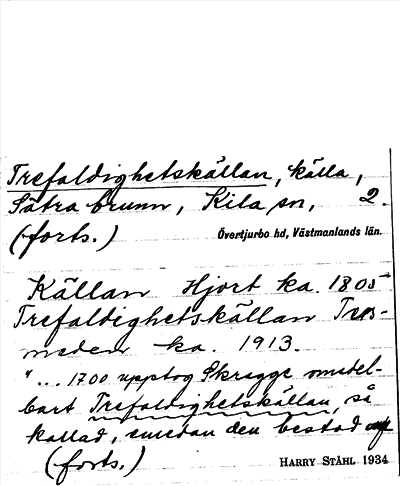 Trefaldighetskällan, källa,
Sätra brunn, Kila sn, 2.
(forts.) Övertjurbo hd, Västmanlands län.
Källan Hjort ka. 1805
Trefaldighetskällan
meden ka. 1913.
"... 1700 upptog Skragge omedel-
bart Trefaldighetskällan, så
kallad, emedan den bestod af
(forts.) HARRY STÅHL 1934